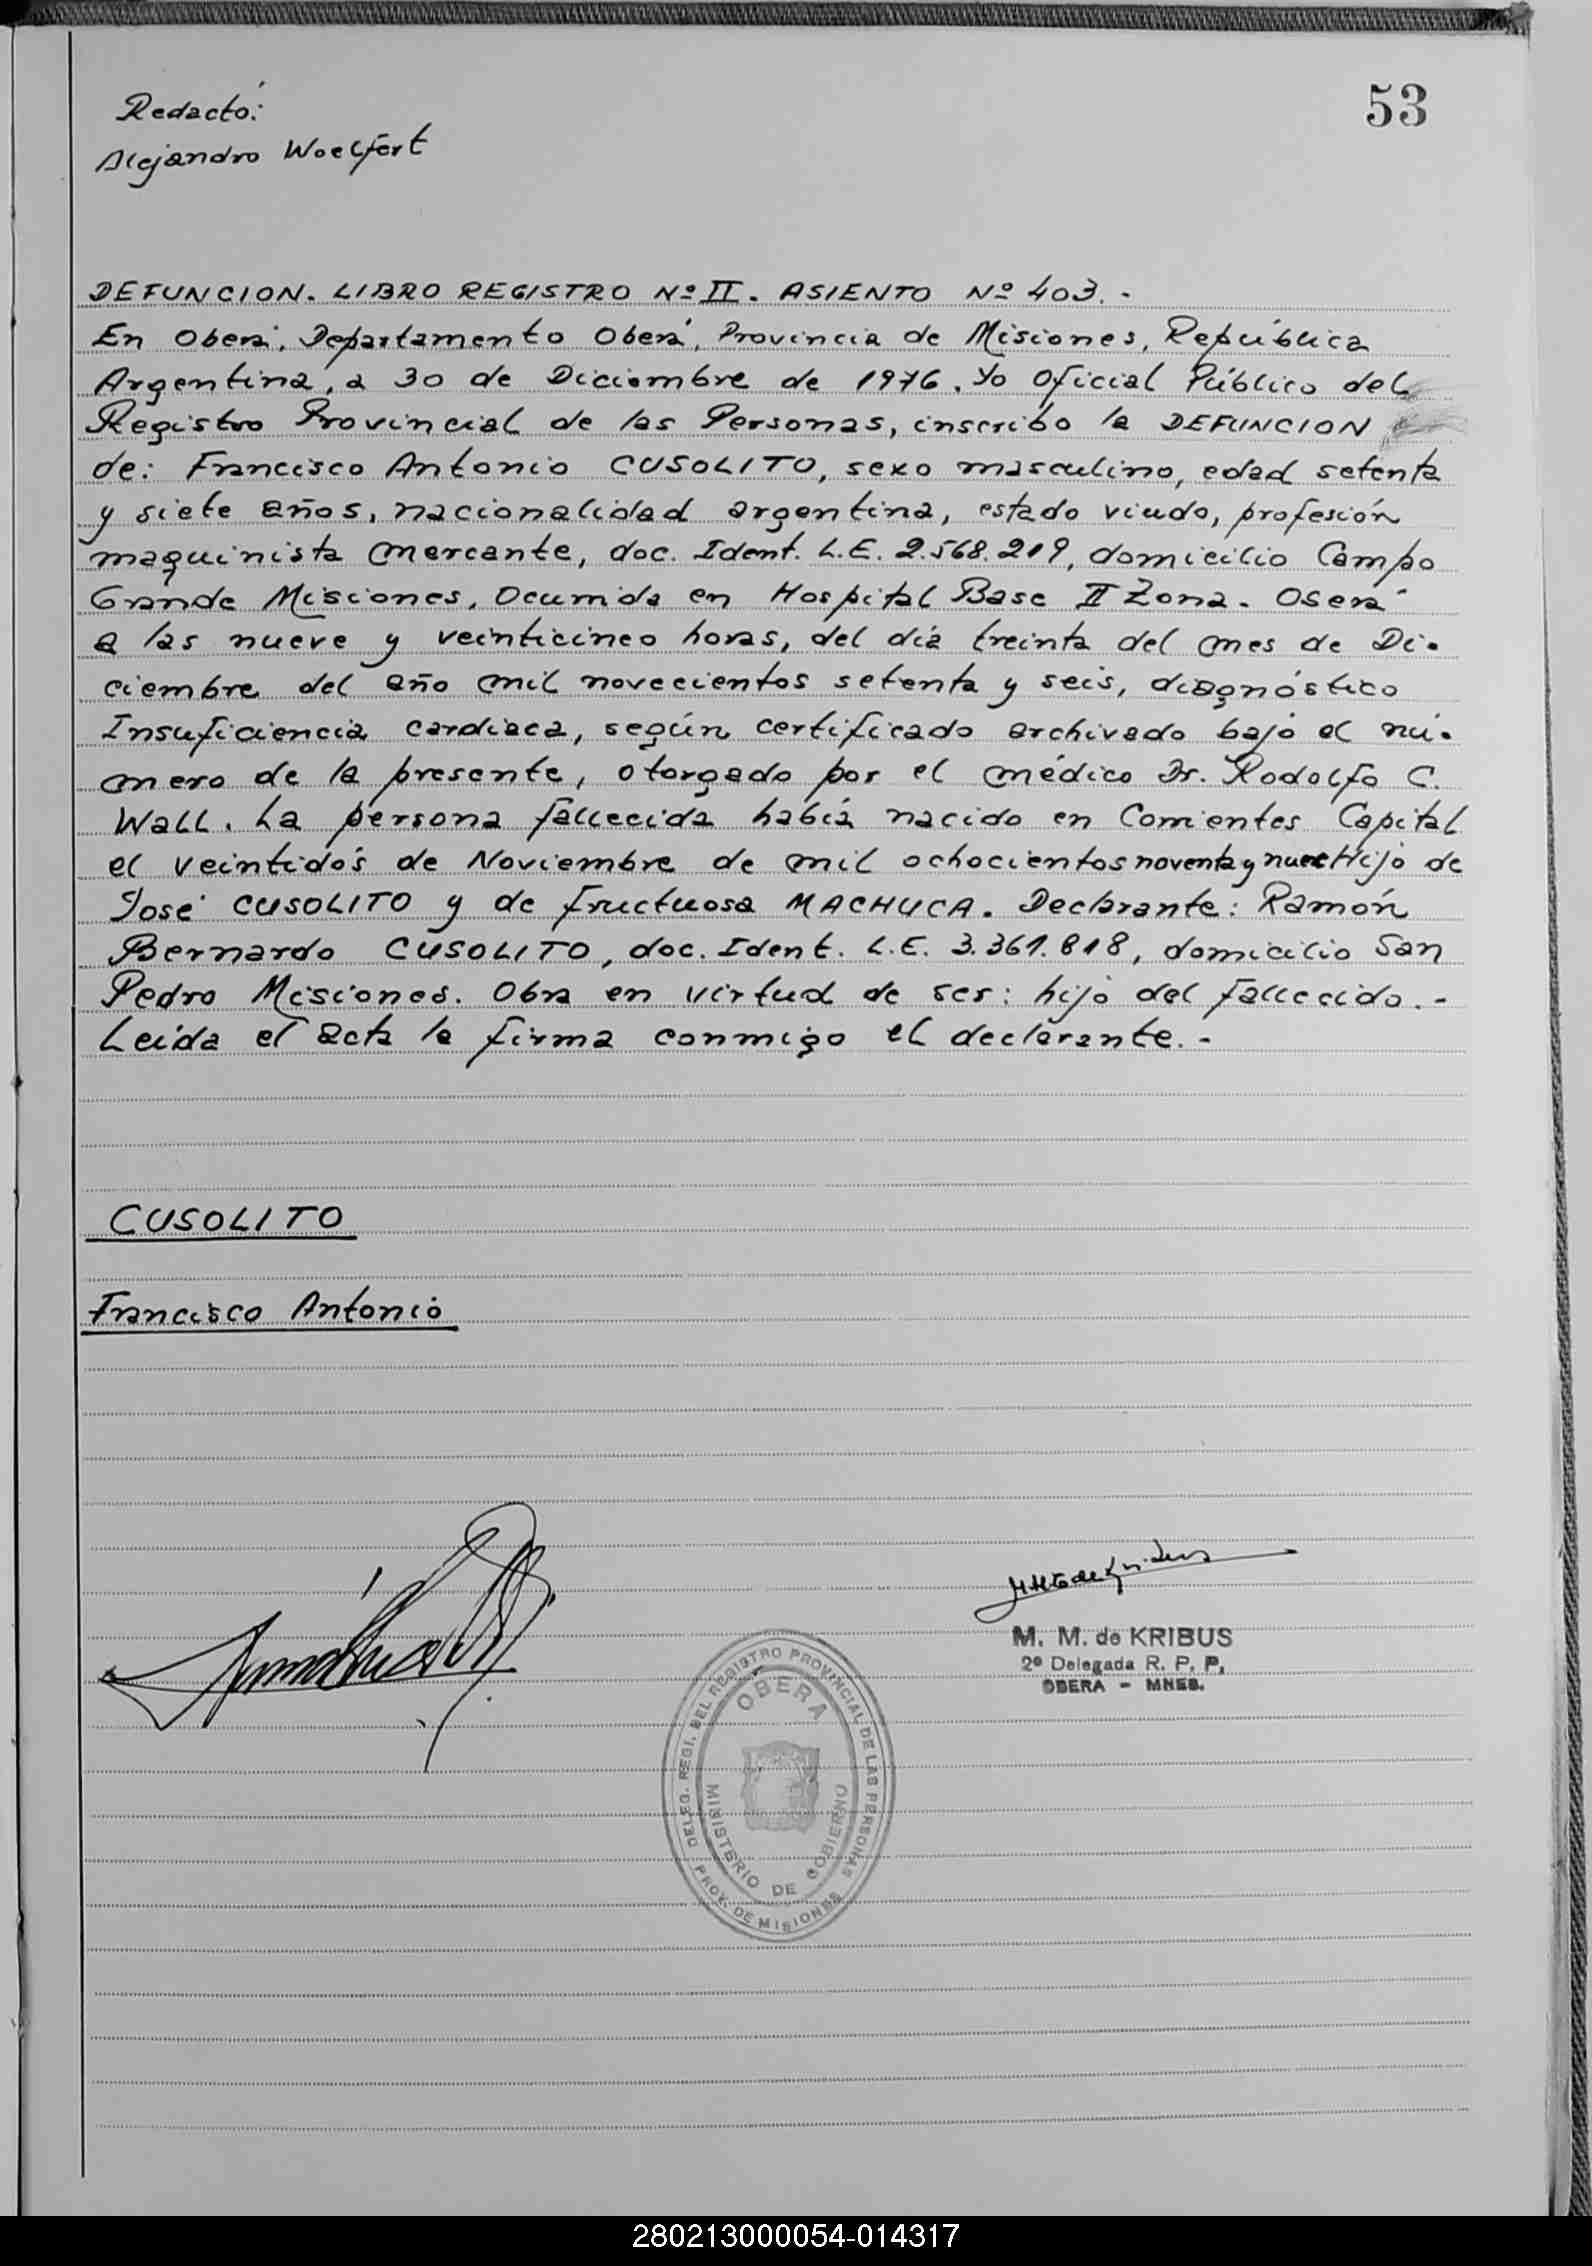 53
Redactó:
Alejandro Woelfert
DEFUNCION. LIBRO REGISTRO Nº II. ASIENTO Nº 403.-
En Oberá, Departamento Oberá, Provincia de Misiones, República
Argentina, a 30 de Diciembre de 1976. Yo Oficial Público del
Registro Provincial de las Personas, inscribo la DEFUNCION
de: Francisco Antonio CUSOLITO, sexo masculino, edad setenta
y siete años, nacionalidad argentina, estado viudo, profesión
maquinista mercante, doc. Ident. L.E. 2.568.219, domicilio Campo
Grande Misiones. Ocurrida en Hospital Base II Zona. Oberá
a las nueve y veinticinco horas, del día treinta del mes de Di-
ciembre del año mil novecientos setenta y seis, diagnóstico
Insuficiencia cardiaca, según certificado archivado bajo el nú-
mero de la presente, otorgado por el médico Dr. Rodolfo C.
Wall. La persona fallecida había nacido en Corrientes Capital
el veintidós de Noviembre de mil ochocientos noventa y nueve Hijo de
José CUSOLITO y de Fructuosa MACHUCA. Declarante: Ramón
Bernardo CUSOLITO, doc. Ident. L.E. 3.361.818, domicilio San
Pedro Misiones. Obra en virtud de ser: hijo del fallecido.-
Leída el acta la firma conmigo el declarante.-
CUSOLITO
Francisco Antonio
M. M. de KRIBUS
2º Delegada R. P. P.
OBERA - MNES.
DELEG. REGI. DEL REGISTRO PROVINCIAL DE LAS PERSONAS
OBERA
MINISTERIO DE GOBIERNO
PROV. DE MISIONES
280213000054-014317